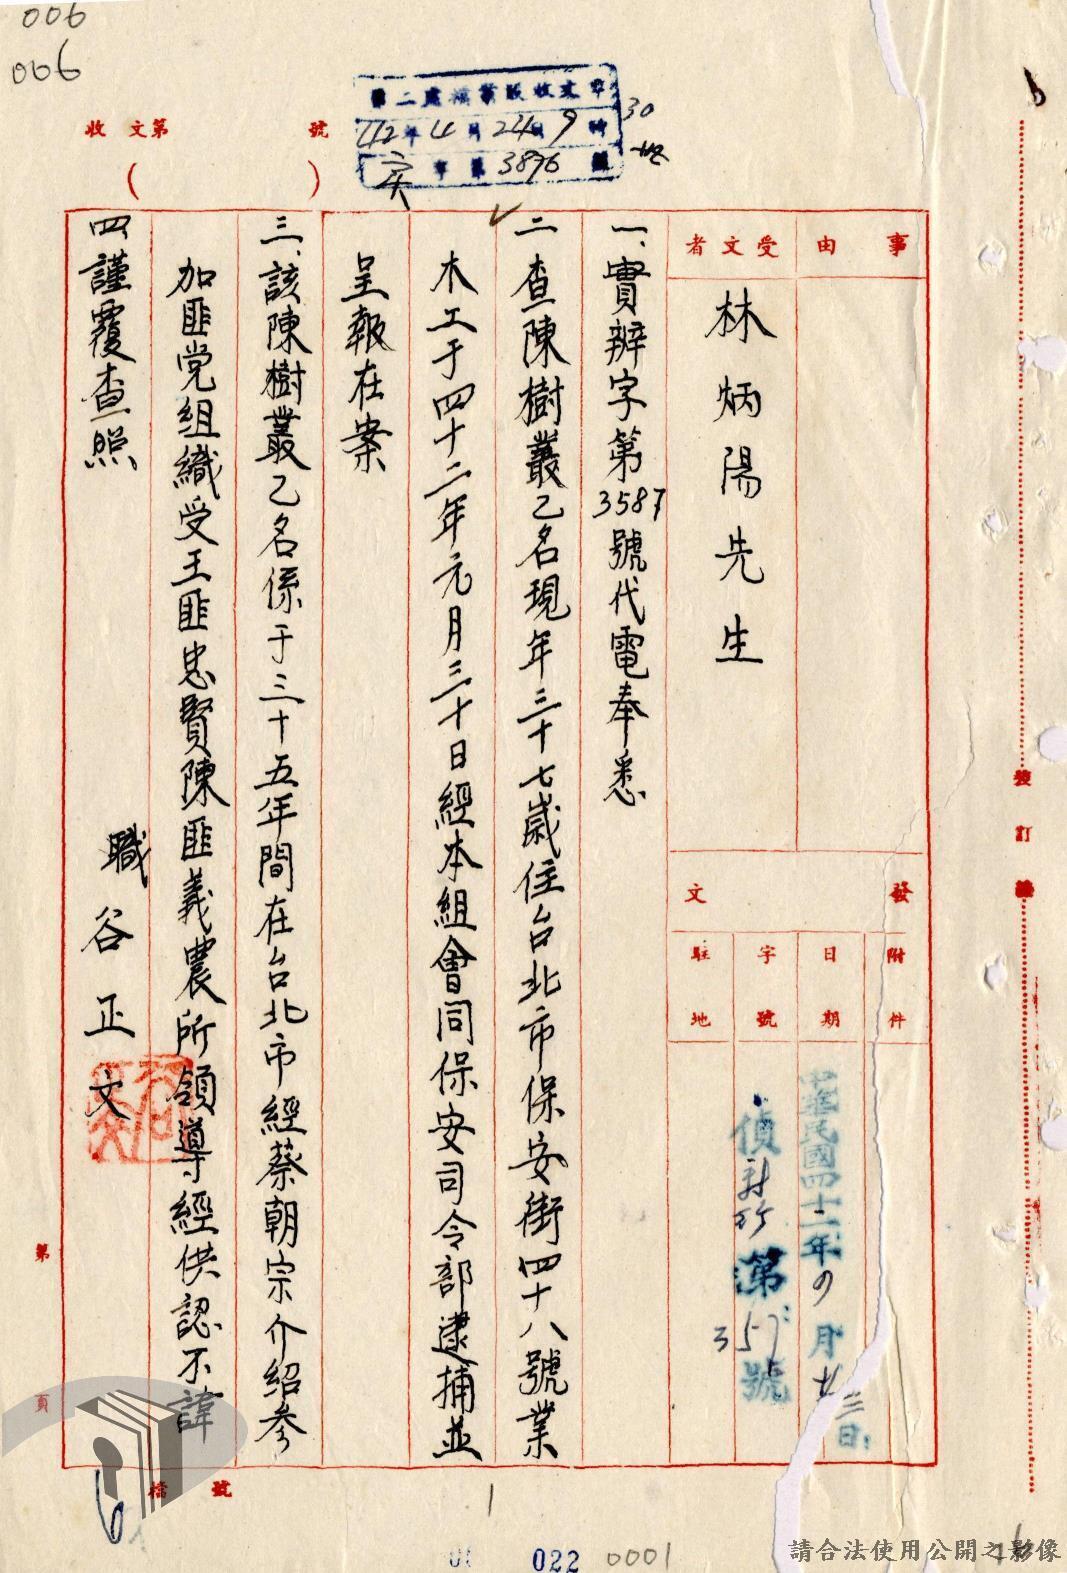 006
006
第二處檔案股收文章
42年4月24日9時30
字第3896號
收文第 號
( )
事由
受文者
林炳陽先生
發文
附件
日期
中華民國四十二年 月廿三日
字號
偵 第357號
駐地
一、實辦字第3587號代電奉悉
二查陳樹叢乙名現年三十七歲住台北市保安街四十八號業
木工于四十二年元月三十日經本組會同保安司令部逮捕並
呈報在案
三、該陳樹叢乙名係于三十五年間在台北市經蔡朝宗介紹參
加匪党組織受王匪忠賢陳匪義農所領導經供認不諱
四謹覆查照
職谷正文
第 頁
檔號
裝訂線
6
1
022
0001
請合法使用公開之影像